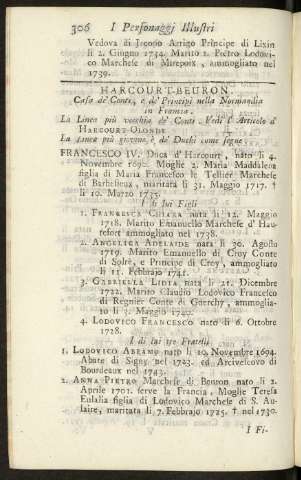 306 I Personaggj Illustri
Vedova di Jacopo Arrigo Principe di Lixin
li 2. Giugno 1734. Marito 2. Pietro Lodovi-
co Marchese di Mirepoix, ammogliato nel
1739.
HARCOURT-BEURON.
Casa de' Conti, e de' Principi nella Normandia
in Francia.
La Linea più vecchia de' Conti. Vedi l' Articolo d'
HARCOURT OLONDE.
La Linea più giovane, è de' Duchi come segue.
FRANCESCO IV. Duca d'Harcourt, nato li 4.
Novembre 1690. Moglie 2. Maria Maddalena
figlia di Maria Francesco le Tellier Marchese
di Barbesieux, maritata li 31. Maggio 1717. †
li 10. Marzo 1735.
I di lui Figli
1. FRANCESCA CHIARA nata li 12. Maggio
1718. Marito Emanuello Marchese d' Hau-
tefort ammogliato nel 1738.
2. ANGELICA ADELAIDE nata li 30. Agosto
1719. Marito Emanuello di Croy Conte
di Solre, e Principe di Croy, ammogliato
li 11. Febbrajo 1741.
3. GABRIELLA LIDIA nata li 21. Dicembre
1722. Marito Claudio Lodovico Francesco
di Regnier Conte di Guerchy, ammoglia-
to li 3. Marzo 1740.
4. LODOVICO FRANCESCO nato li 6. Ottobre
1728.
I di lui tre Fratelli
1. LODOVICO ABRAMO nato li 10. Novembre 1694.
Abate di Signy nel 1723. ed Arcivescovo di
Bourdeaux nel 1743.
2. ANNA PIETRO Marchese di Beuron nato li 2.
Aprile 1701. serve la Francia, Moglie Teresa
Eulalia figlia di Lodovico Marchese di S. Au-
laire, maritata li 7. Febbrajo 1725. † nel 1730.
I Fi-